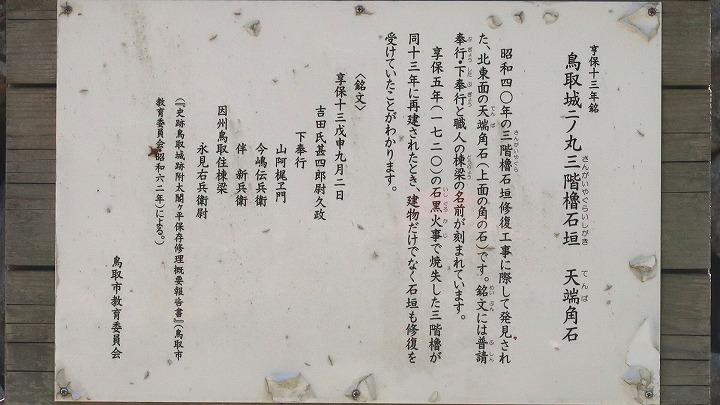 享保十三年銘
鳥取城二ノ丸三階櫓石垣 天端角石
さんがいやぐらいしがき てんば
昭和四〇年の三階櫓石垣修復工事に際して発見され
さんがいやぐら
た、北東面の天端角石(上面の角の石)です。銘文には普請
てんば めいぶん ふしん
奉行・下奉行と職人の棟梁の名前が刻まれています。
ぶぎょう したぶぎょう とうりょう
享保五年(一七二〇)の石黒火事で焼失した三階櫓が
いしぐろかじ
同十三年に再建されたとき、建物だけでなく石垣も修復を
受けていたことがわかります。
〈銘文〉
享保十三戊申九月二日
吉田氏甚四郎尉久政
下奉行
山阿梶ヱ門
今嶋伝兵衛
伴 新兵衛
因州鳥取住棟梁
永見右兵衛尉
(『史跡鳥取城跡附太閤ヶ平保存修理概要報告書』(鳥取市
教育委員会・昭和六二年)による。)
鳥取市教育委員会